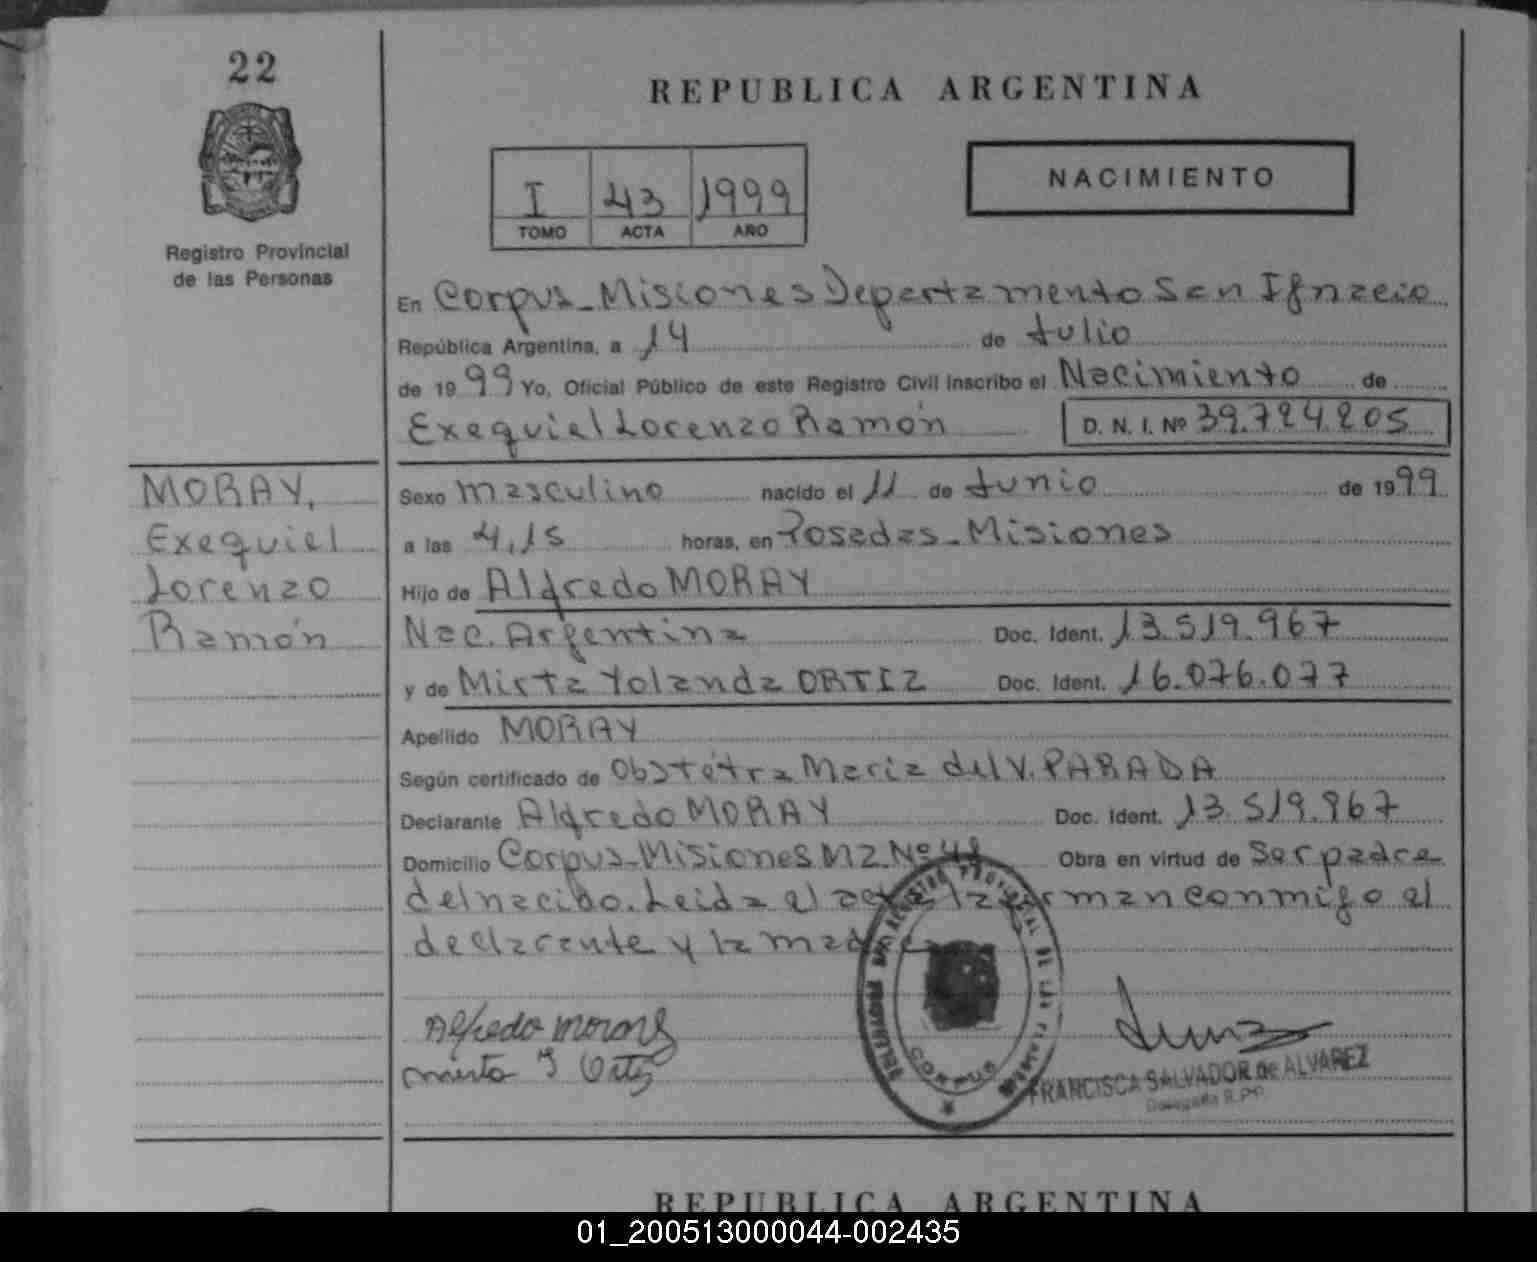 22
REPUBLICA ARGENTINA
Registro Provincial
de las Personas
I 43 1999
TOMO ACTA AÑO
NACIMIENTO
En Corpus-Misiones Departamento San Ignacio
República Argentina, a 14 de Julio
de 1999 Yo, Oficial Público de este Registro Civil inscribo el Nacimiento de
Exequiel Lorenzo Ramón D. N. I. Nº 39.724.205
MORAY,
Exequiel
Lorenzo
Ramón
Sexo masculino nacido el 11 de Junio de 1999
a las 4,15 horas, en Posadas-Misiones
Hijo de Alfredo MORAY
Nac. Argentina Doc. Ident. 13.519.967
y de Mirta Yolanda ORTIZ Doc. Ident. 16.076.077
Apellido MORAY
Según certificado de Obstétra Maria del V. PARADA
Declarante Alfredo MORAY Doc. Ident. 13.519.967
Domicilio Corpus-Misiones MZ Nº 48 Obra en virtud de Ser padre
del nacido. Leida el acta la firman conmigo el
declarante y la madre
Alfredo Moray
Mirta Y Ortiz
CORPUS
FRANCISCA SALVADOR de ALVAREZ
Delegada R.P.P.
REPUBLICA ARGENTINA
01_200513000044-002435